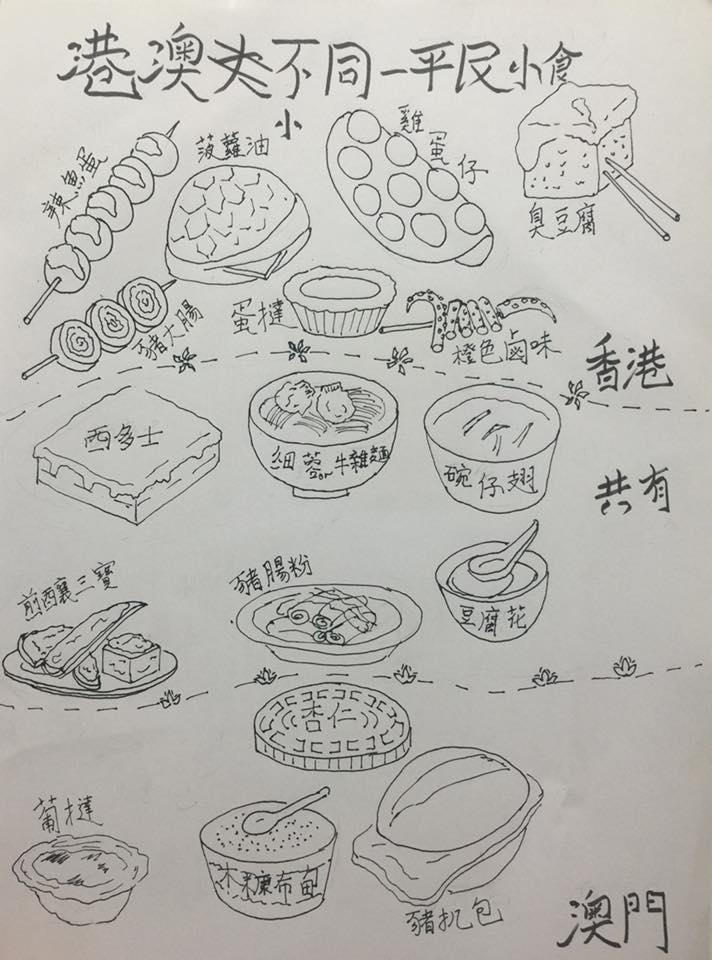 港澳大不同—平民小食
小
辣魚蛋
菠蘿油
雞蛋仔
臭豆腐
豬大腸
蛋撻
橙色鹵味
香港
西多士
細蓉or牛雜麵
碗仔翅
共有
煎釀三寶
豬腸粉
豆腐花
杏仁
葡撻
木糠布甸
豬扒包
澳門